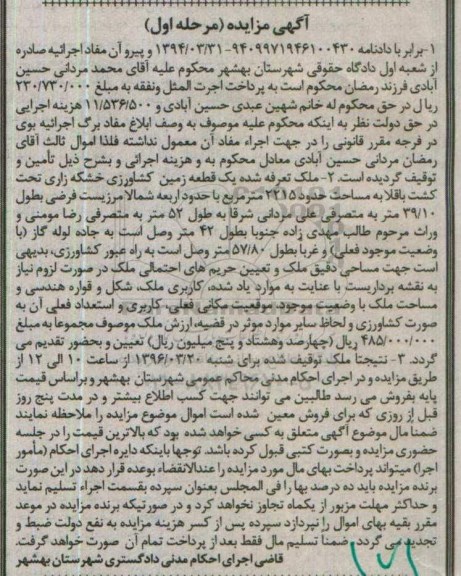 آگهی مزایده (مرحله اول)
۱-برابر با دادنامه ۹۴۰۹۹۷۱۹۴۶۱۰۰۴۳۰-۱۳۹۴/۰۳/۳۱ و پیرو آن مفاد اجرائیه صادره
از شعبه اول دادگاه حقوقی شهرستان بهشهر محکوم علیه آقای محمد مردانی حسین
آبادی فرزند رمضان محکوم است به پرداخت اجرت المثل ونفقه به مبلغ ۲۳۰/۷۳۰/۰۰۰
ریال در حق محکوم له خانم شهین عبدی حسین آبادی و ۱۱/۵۳۶/۵۰۰ هزینه اجرایی
در حق دولت نظر به اینکه محکوم علیه موصوف به وصف ابلاغ مفاد برگ اجرائیه بوی
در فرجه مقرر قانونی را در جهت اجراء مفاد آن معمول نداشته فلذا اموال ثالث آقای
رمضان مردانی حسین آبادی معادل محکوم به و هزینه اجرائی و بشرح ذیل تأمین و
توقیف گردیده است. ۲- ملک تعرفه شده یک قطعه زمین کشاورزی خشکه زاری تحت
کشت باقلا به مساحت حدود ۲۲۱۵ متر مربع با حدود اربعه شمالا مرزیست فرضی بطول
۳۹/۱۰ متر به متصرفی علی مردانی شرقا به طول ۵۲ متر به متصرفی رضا مومنی و
وراث مرحوم طالب مهدی زاده جنوبا بطول ۴۲ متر وصل است به جاده لوله گاز (با
وضعیت موجود فعلی) و غربا بطول ۵۷/۸۰ متر وصل است به راه عبور کشاورزی، بدیهی
است جهت مساحی دقیق ملک و تعیین حریم های احتمالی ملک در صورت لزوم نیاز
به نقشه برداریست با عنایت به موارد یاد شده، کاربری ملک، شکل و قواره هندسی و
مساحت ملک با وضعیت موجود، موقعیت مکانی فعلی، کاربری و استعداد فعلی آن به
صورت کشاورزی و لحاظ سایر موارد موثر در قضیه، ارزش ملک موصوف مجموعا به مبلغ
۴۸۵/۰۰۰/۰۰۰ ریال (چهارصد وهشتاد و پنج میلیون ریال) تعیین و بحضور تقدیم می
گردد. ۳- نتیجتا ملک توقیف شده برای شنبه ۱۳۹۶/۰۳/۲۰ از ساعت ۱۰ الی ۱۲ از
طریق مزایده و در اجرای احکام مدنی محاکم عمومی شهرستان بهشهر و براساس قیمت
پایه بفروش می رسد طالبین می توانند جهت کسب اطلاع بیشتر و در مدت پنج روز
قبل از روزی که برای فروش معین شده است اموال موضوع مزایده را ملاحظه نمایند
ضمنا مال موضوع آگهی متعلق به کسی خواهد شده بود که بالاترین قیمت را در جلسه
حضوری مزایده و بصورت کتبی قبول کرده باشد. توجها باینکه دایره اجرای احکام (مأمور
اجرا) میتواند پرداخت بهای مال مورد مزایده را عندالانقضاء بوعده قرار دهد در این صورت
برنده مزایده باید ده درصد بها را فی المجلس بعنوان سپرده بقسمت اجراء تسلیم نماید
و حداکثر مهلت مزبور از یکماه تجاوز نخواهد کرد و در صورتیکه برنده مزایده در موعد
مقرر بقیه بهای اموال را نپردازد سپرده پس از کسر هزینه مزایده به نفع دولت ضبط و
تجدید می گردد. ضمنا تسلیم مال فقط بعد از پرداخت تمام آن صورت خواهد گرفت.
قاضی اجرای احکام مدنی دادگستری شهرستان بهشهر
۱۷۱